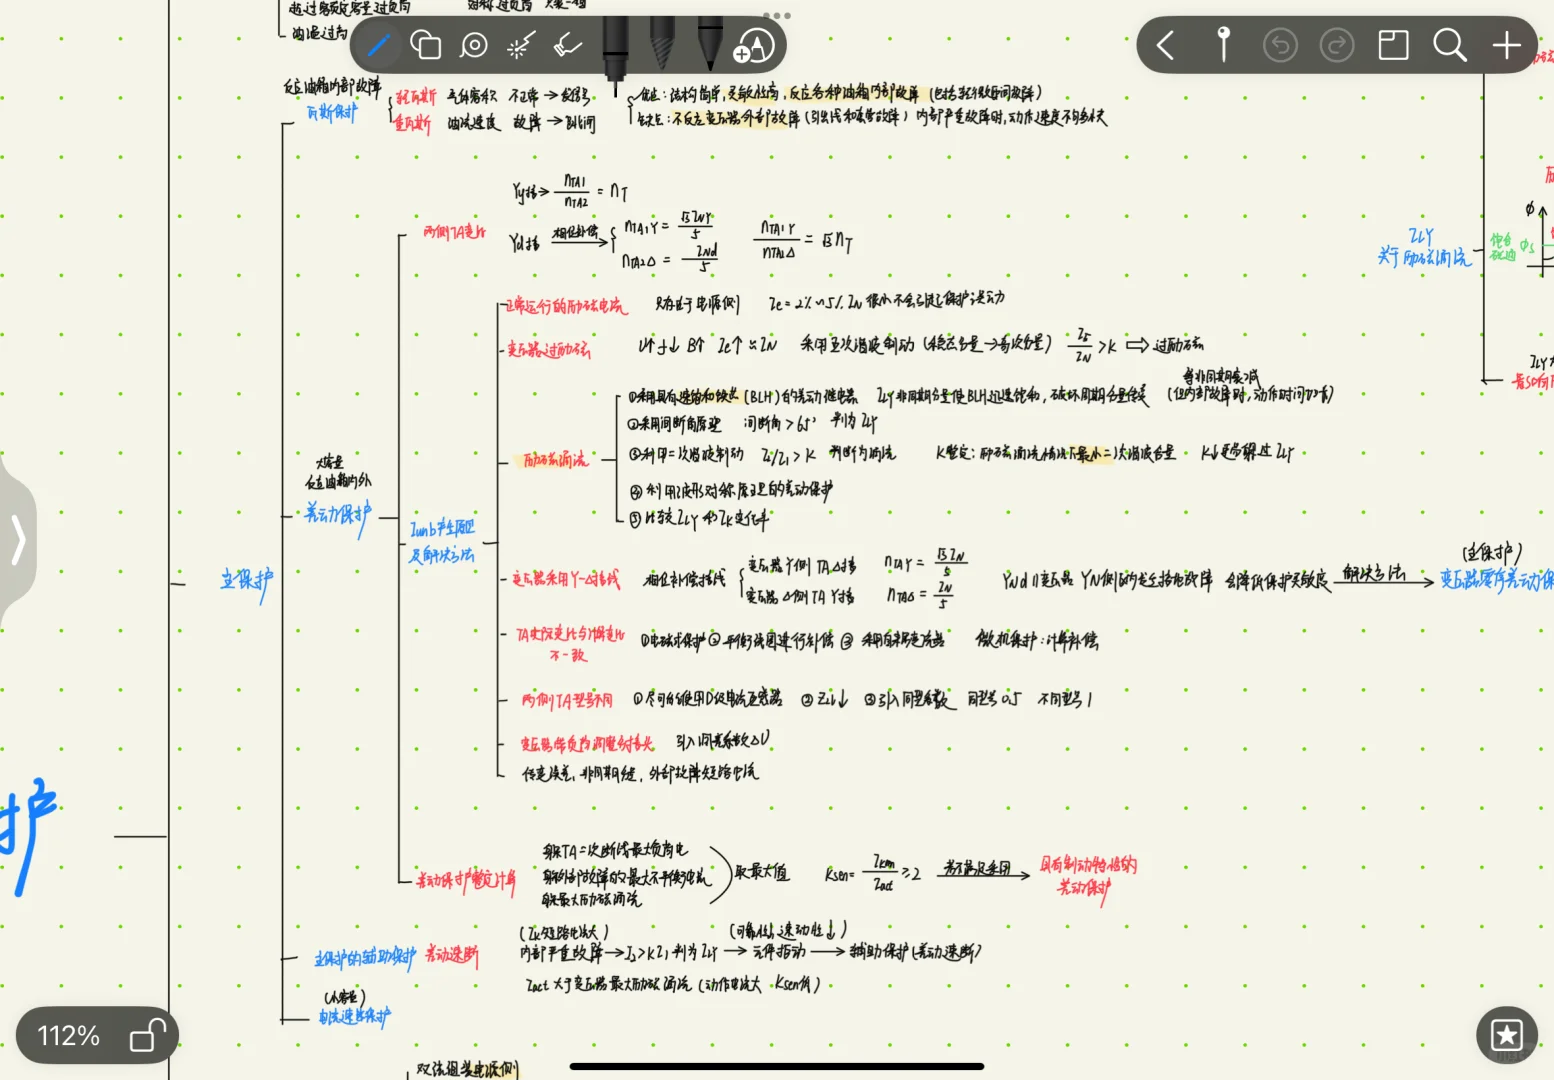 超过额定容量过负荷
油温过高
反应油箱内部故障
瓦斯保护
轻瓦斯 气体容积 不正常→发信号
重瓦斯 油流速度 故障→跳闸
优点:结构简单,灵敏性高,反应各种油箱内部故障(包括轻微匝间故障)
缺点:不反应变压器外部故障(引出线和套管故障) 内部严重故障时,动作速度不够快
两侧TA变比
Yy接→ nTA1/nTA2 = nT
Yd接 相位补偿→ nTA1Y = √3INY/5
nTA2Δ = INd/5
nTA1Y/nTA1Δ = √3nT
正常运行的励磁电流 只存在于电源侧 Ie=2%~5%IN 很小不会引起保护误动
变压器过励磁 U↑f↓ B↑ Ie↑≈IN 采用五次谐波制动 I5/IN>K ⇒ 过励磁
励磁涌流
①采用具有速饱和铁芯(BLH)的差动继电器 ILY非周期分量使BLH迅速饱和,破坏周期分量传变 (但内部故障时,动作时间加长)
等非周期衰减
②采用间断角原理 间断角>65° 判为ILY
③利用二次谐波制动 I2/I1>K 判断为涌流 K整定:励磁涌流情况下最小二次谐波含量 K↓更易躲过ILY
④利用波形对称原理的差动保护
⑤比较ILY和IK变化率
大容量
反应油箱内外
差动保护
Iunb产生原因
及解决方法
主保护
变压器采用Y-Δ接线 相位补偿接线
变压器Y侧TAΔ接 nTAY = √3IN/5
变压器Δ侧TAY接 nTAΔ = IN/5
YNd11变压器YN侧内发生接地故障 会降低保护灵敏度 解决方法→
(主保护)
变压器零序差动保
TA实际变比与计算变比
不一致
①电磁式保护②平衡线圈进行补偿③ 微机保护:计算补偿
两侧TA型号不同 ①尽可能使用D级电流互感器 ②ZL↓ ③引入同型系数 同型号0.5 不同型号1
变压器带负荷调整分接头 引入调差系数ΔU
传变误差,非周期分量,外部故障短路电流
护
差动保护整定计算
躲TA二次断线最大负荷电
躲外部故障的最大不平衡电流
躲最大励磁涌流
取最大值 Ksen = Ikm/Iact ≥2 若不满足采用→
具有制动特性的
差动保护
主保护的辅助保护 差动速断
(IK短路电流大) (可靠性,速动性↓)
内部严重故障→I2>KI1判为ILY→元件拒动→辅助保护(差动速断)
Iact大于变压器最大励磁涌流(动作电流大 Ksen低)
(小容量)
电流速断保护
双绕组
ILY
关于励磁涌流
饱合
磁通
Φs
Φ
112%